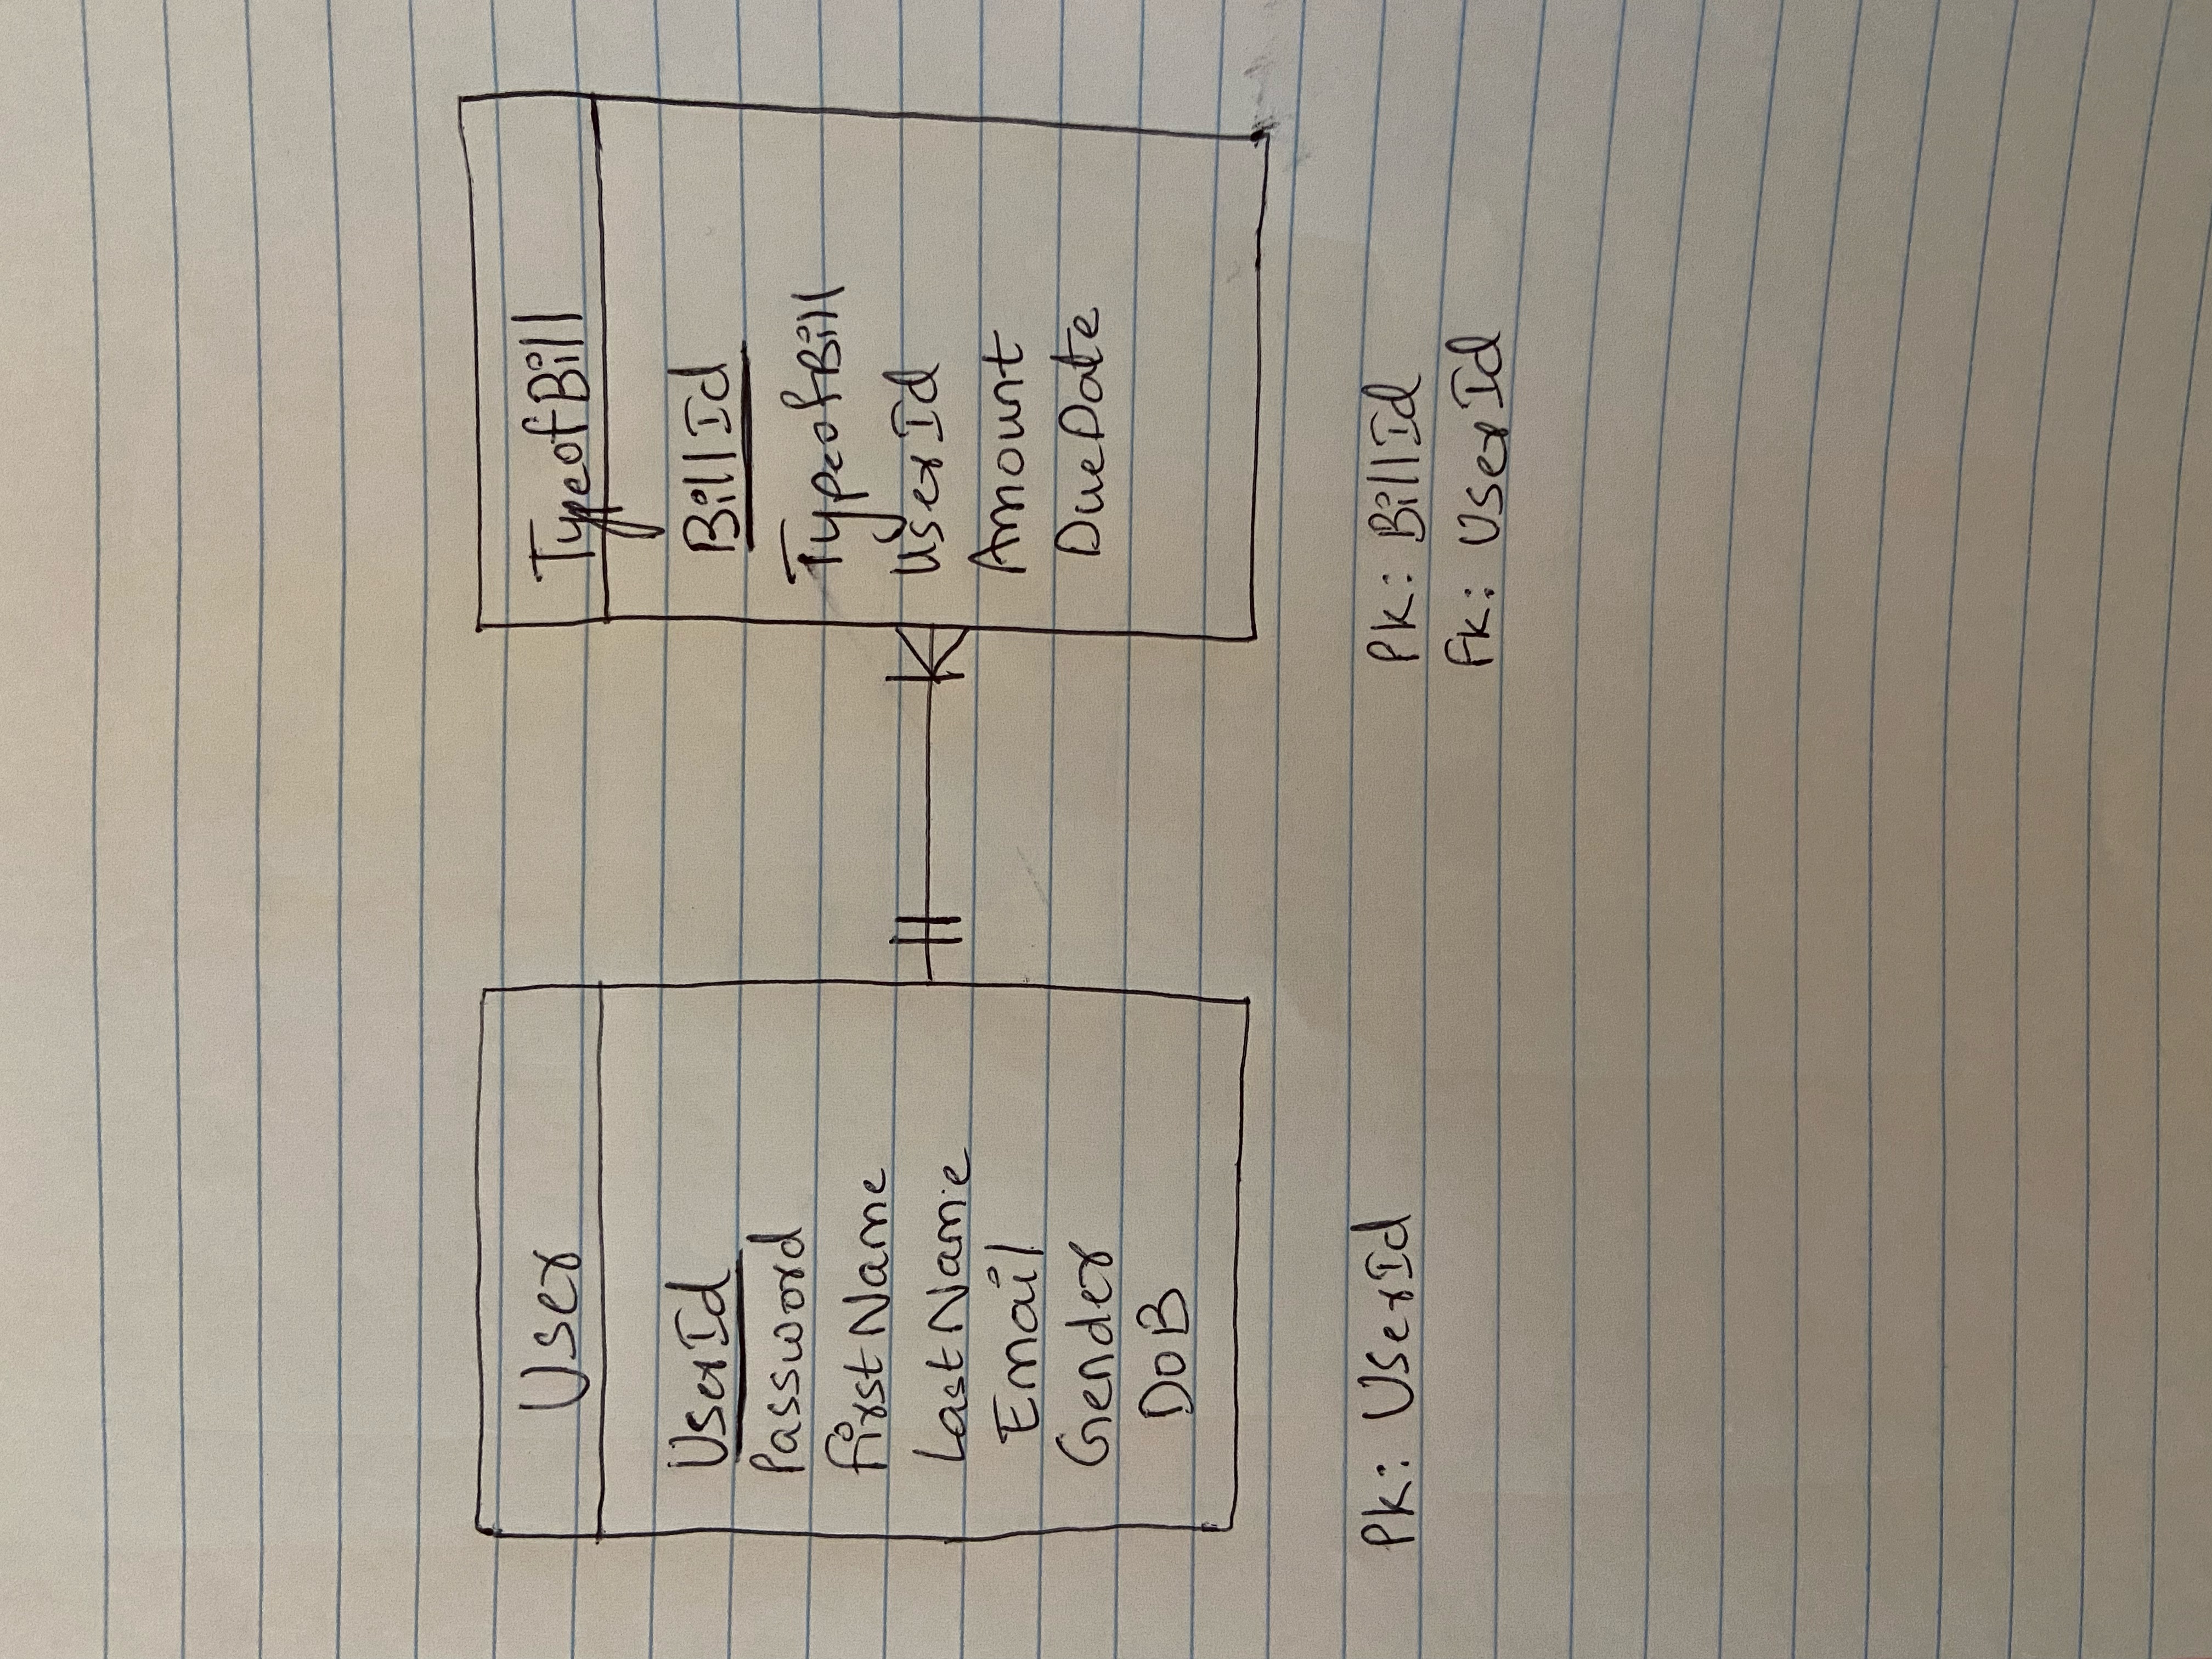 User
UserId
Password
FirstName
LastName
Email
Gender
DoB
TypeofBill
BillId
TypeofBill
UserId
Amount
DueDate
Pk: UserId
Pk: BillId
Fk: UserId